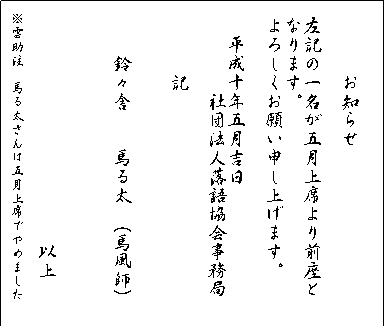 お知らせ
左記の一名が五月上席より前座と
なります。
よろしくお願い申し上げます。
平成十年五月吉日
社団法人落語協会事務局
記
鈴々舎　馬る太　(馬風師)
以上
※雲助注　馬る太さんは五月上席でやめました